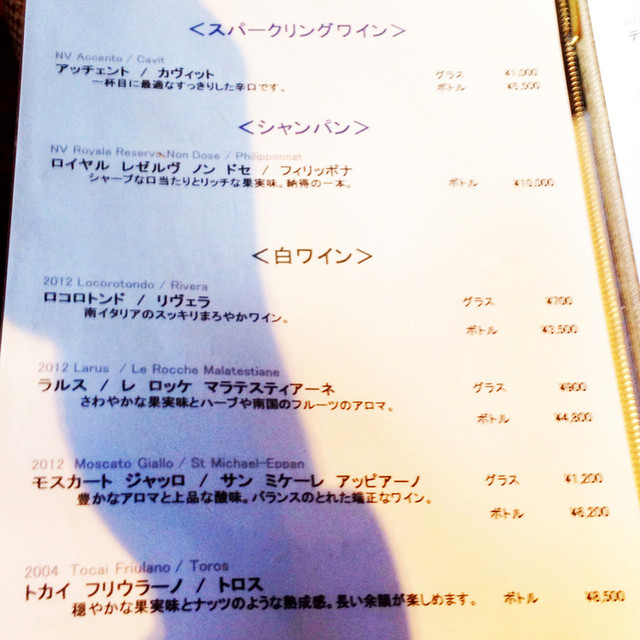 <スパークリングワイン>
NV Accento / Cavit
アッチェント / カヴィット グラス ¥1,000
一杯目に最適なすっきりした辛口です。 ボトル ¥5,500
<シャンパン>
NV Royale Reserva Non Dose / Philipponnat
ロイヤル レゼルヴ ノン ドセ / フィリッポナ
シャープな口当たりとリッチな果実味。納得の一本。 ボトル ¥10,000
<白ワイン>
2012 Locorotondo / Rivera
ロコロトンド / リヴェラ グラス ¥700
南イタリアのスッキリまろやかワイン。
ボトル ¥3,500
2012 Larus / Le Rocche Malatestiane
ラルス / レ ロッケ マラテスティアーネ グラス ¥900
さわやかな果実味とハーブや南国のフルーツのアロマ。
ボトル ¥4,800
2012 Moscato Giallo / St Michael-Eppan
モスカート ジャッロ / サン ミケーレ アッピアーノ グラス ¥1,200
豊かなアロマと上品な酸味。バランスのとれた端正なワイン。
ボトル ¥6,200
2004 Tocai Friulano / Toros
トカイ フリウラーノ / トロス
穏やかな果実味とナッツのような熟成感。長い余韻が楽しめます。 ボトル ¥8,500